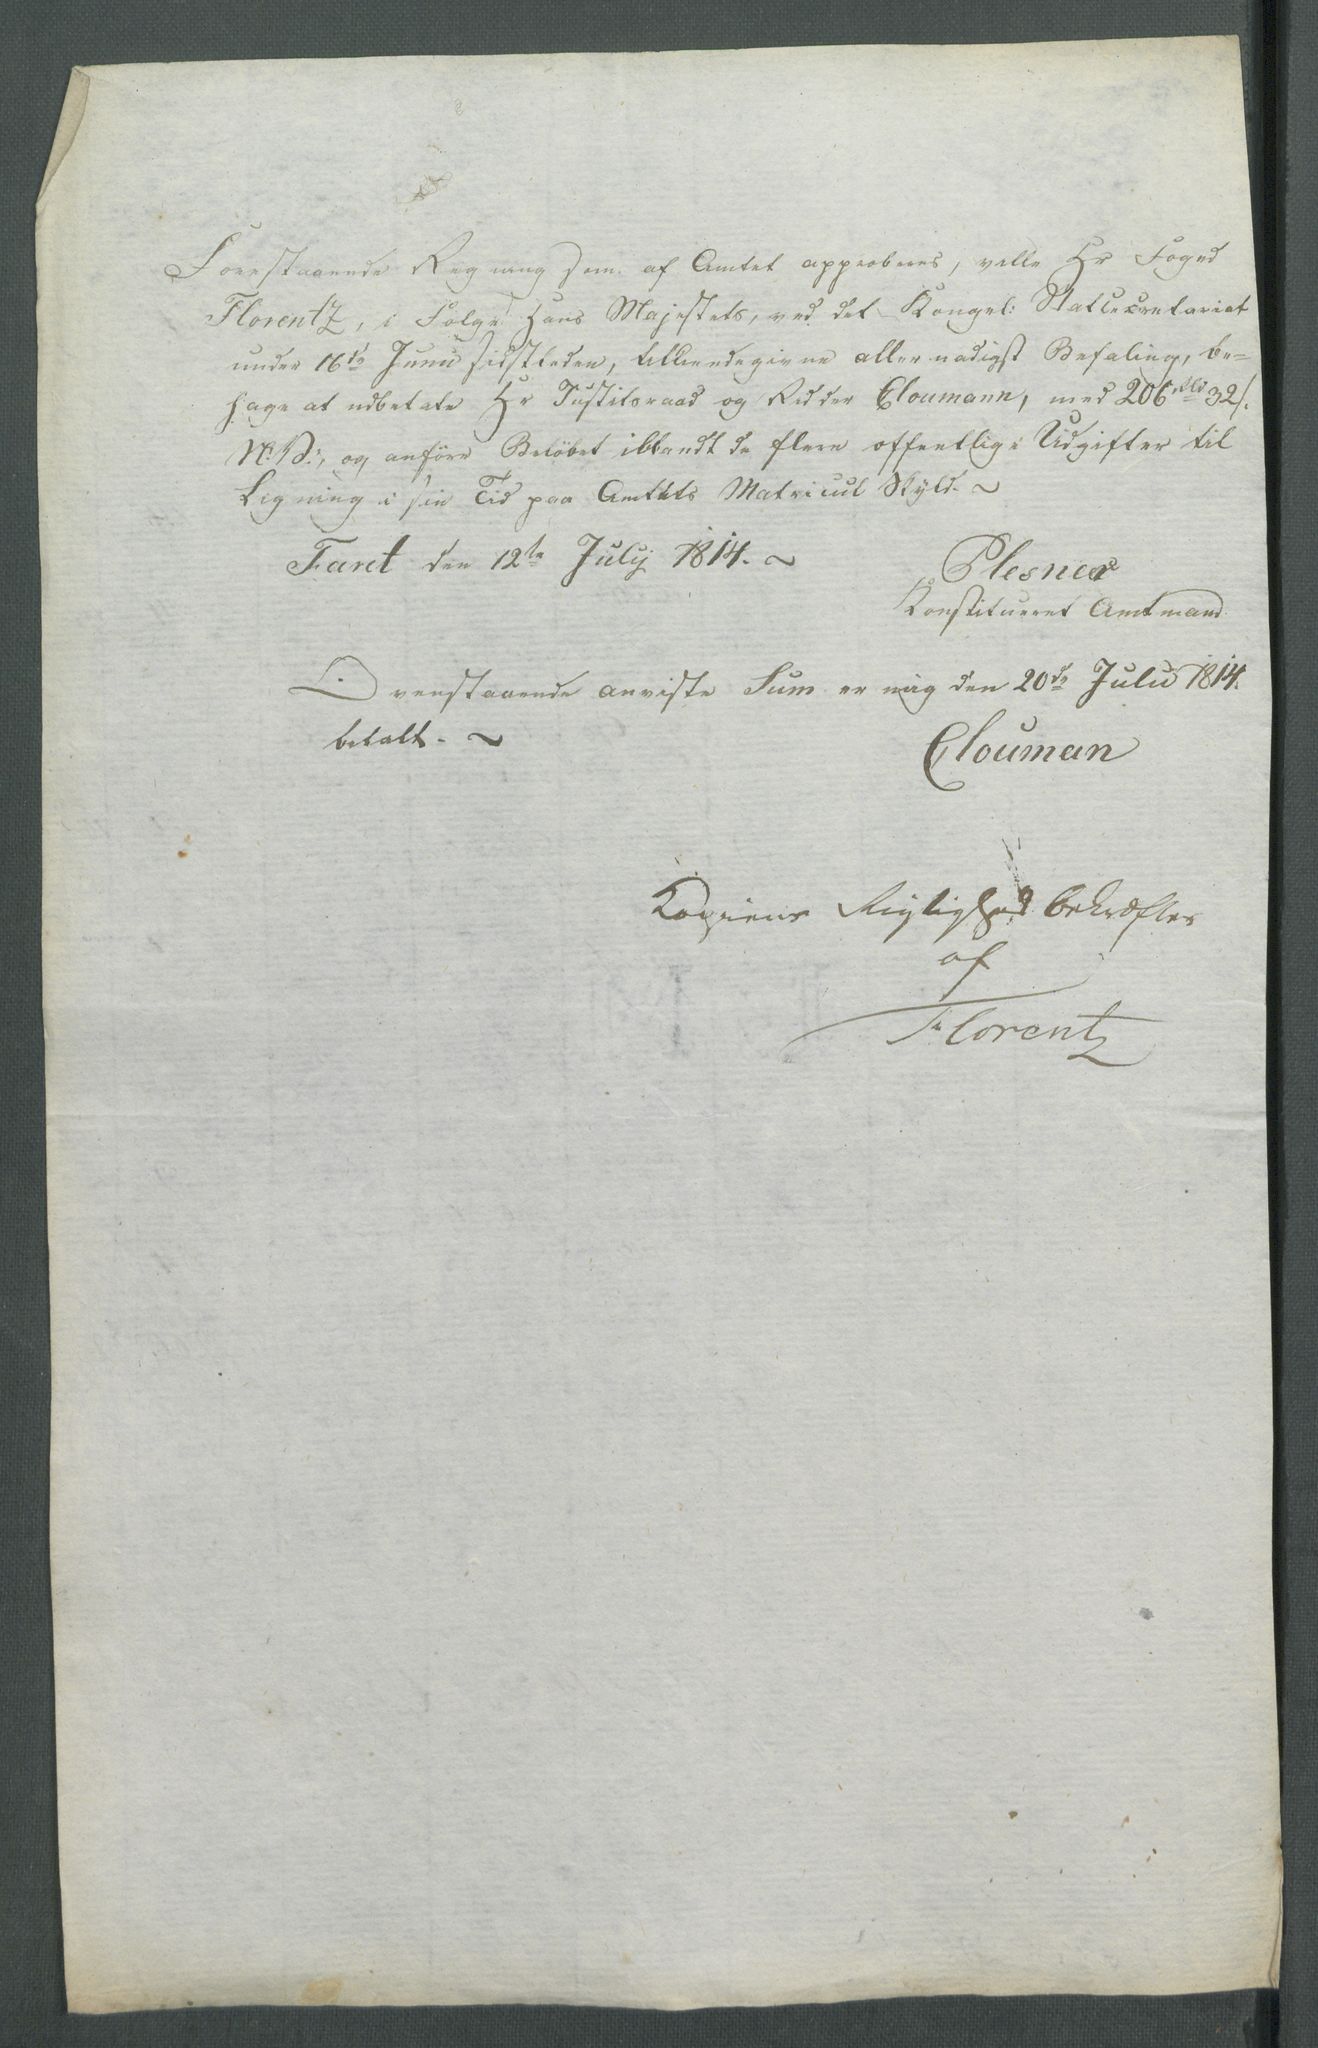 Forestaaende Regning som af Amtet approberes, vilde Hr Foged
Florentz, i Følge Hans Majestets, ved det Kongel: Statsecretariat
under 16de Junii sidstleden, tilkiendegivne allernaadigst Befaling, be=
hage at udbetale Hr Justitsraad og Ridder Cloumann, med 206 rbd 32 s.
N. V:, og anføre Beløbet iblandt de flere offentlige Udgifter til
Ligning i sin Tid paa Amtets Matricul Skyld. ~
Faret den 12te July 1814. ~
Plesner
Konstitueret Amtmand
Ovenstaaende anviste Sum er mig den 20de Julii 1814.
betalt. ~
Clouman
Kopiens Rigtighed bekræfter
af
Florentz